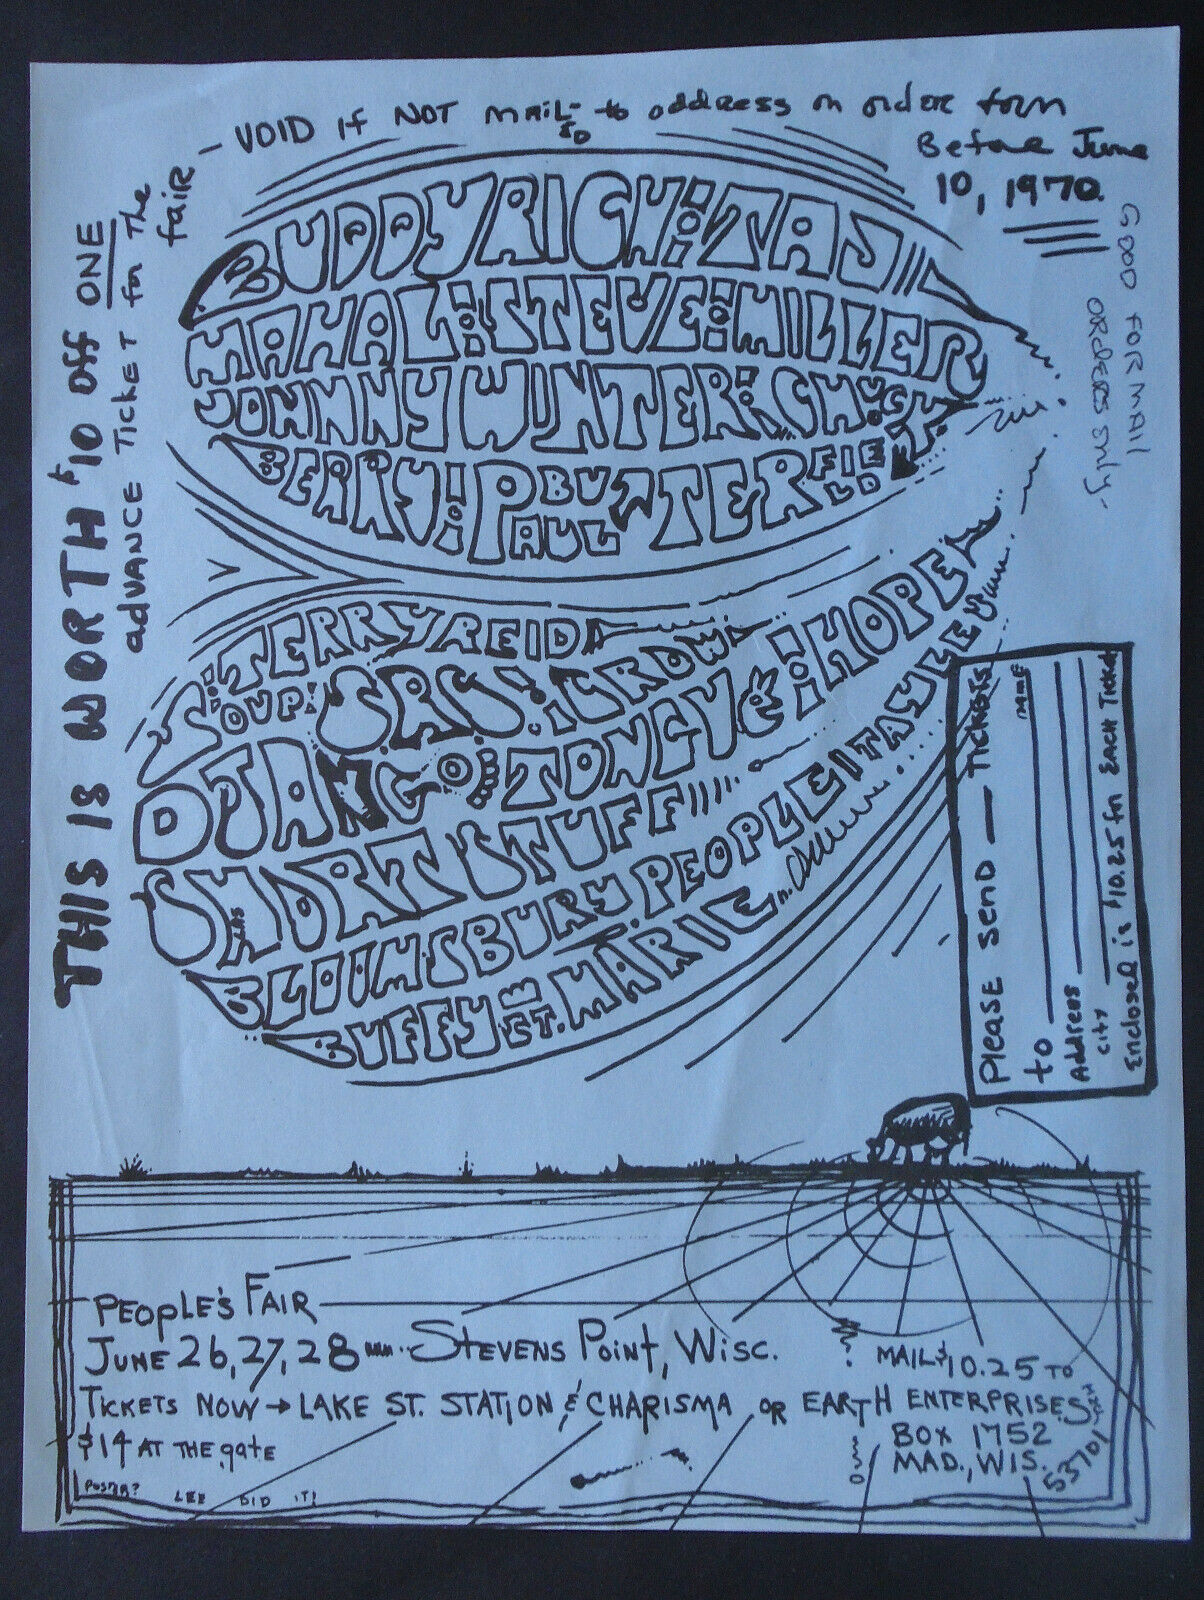 THIS IS WORTH $10 off ONE
advance Ticket for The
fair — VOID if NOT MAIL-ED to address on order form
Before June
10, 1970.
GOOD FOR MAIL
ORDERS ONLY
BUDDY RICH : TAJ
MAHAL : STEVE : MILLER
JOHNNY WINTER : CHUCK
BERRY : PAUL BUTTERFIELD
TERRY REID
SOUP : SRC : CROW
DJANGO TONGUE : HOPE
SHORT STUFF
BLOOMSBURY PEOPLE : TAYLE
BUFFY ST. MARIE
Please send — Tickets
to name
Address
city
Enclosed is $10.25 for EACH Ticket
PEOPLE'S FAIR
JUNE 26, 27, 28 STEVENS POINT, WISC.
TICKETS NOW → LAKE ST. STATION & CHARISMA OR EARTH ENTERPRISES
$14 AT THE gate
MAIL $10.25 TO
BOX 1752
MAD., WIS.
53701
POSTER? LEE DID IT!